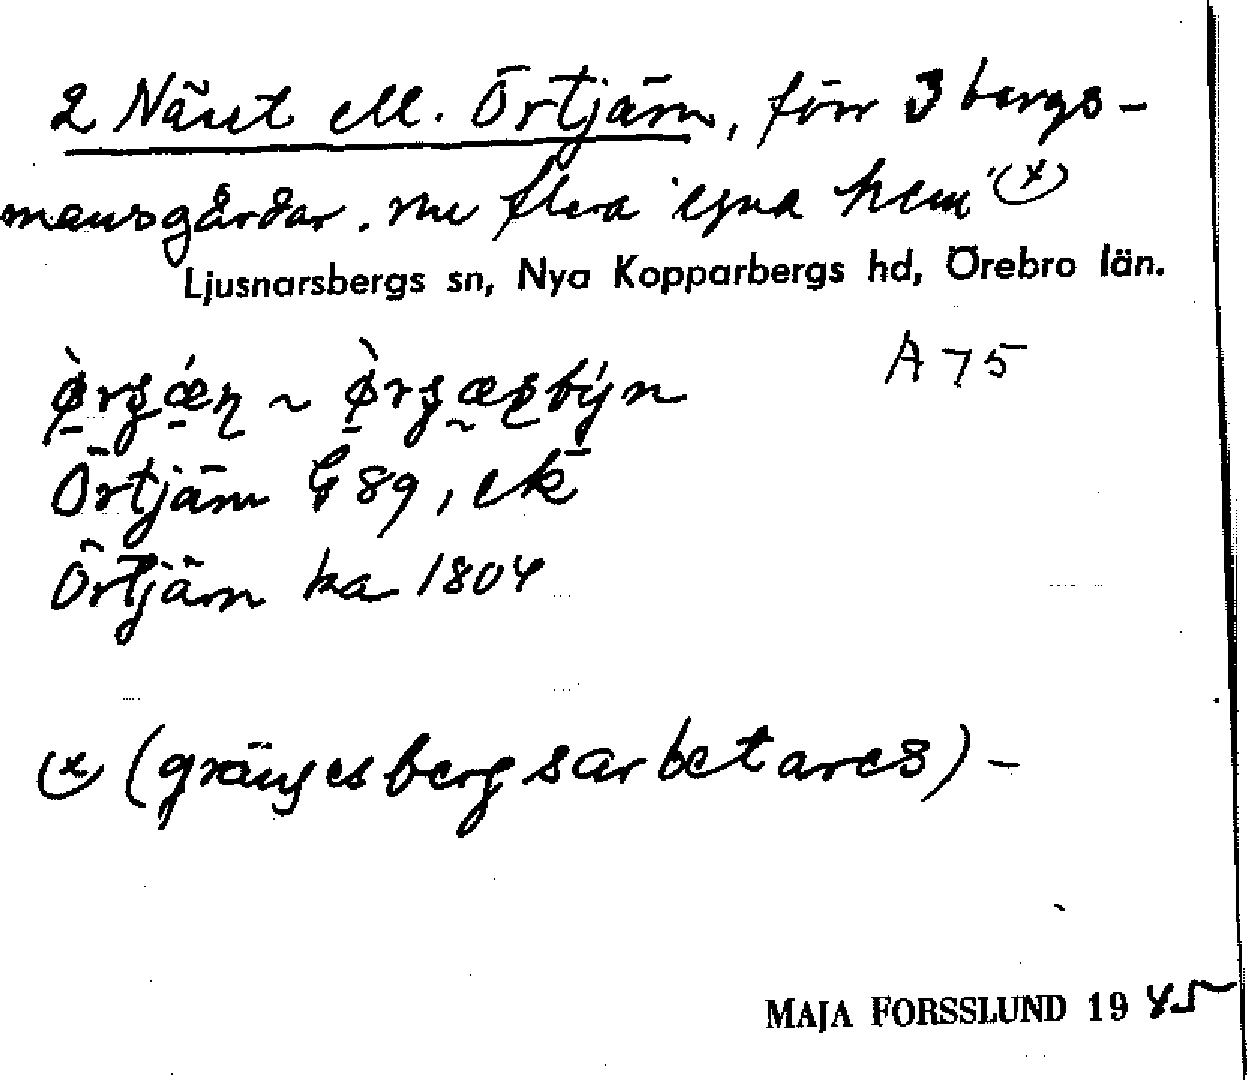 2 Näset ell. Örtjärn, förr 3 bergs-
mansgårdar. nu flera "egna hem" (x)
Ljusnarsbergs sn, Nya Kopparbergs hd, Örebro län.
A 75
Örtjärn G 89, ek
Örtjärn ka 1804
(x) (grängesbergsarbetares) -
MAJA FORSSLUND 1945